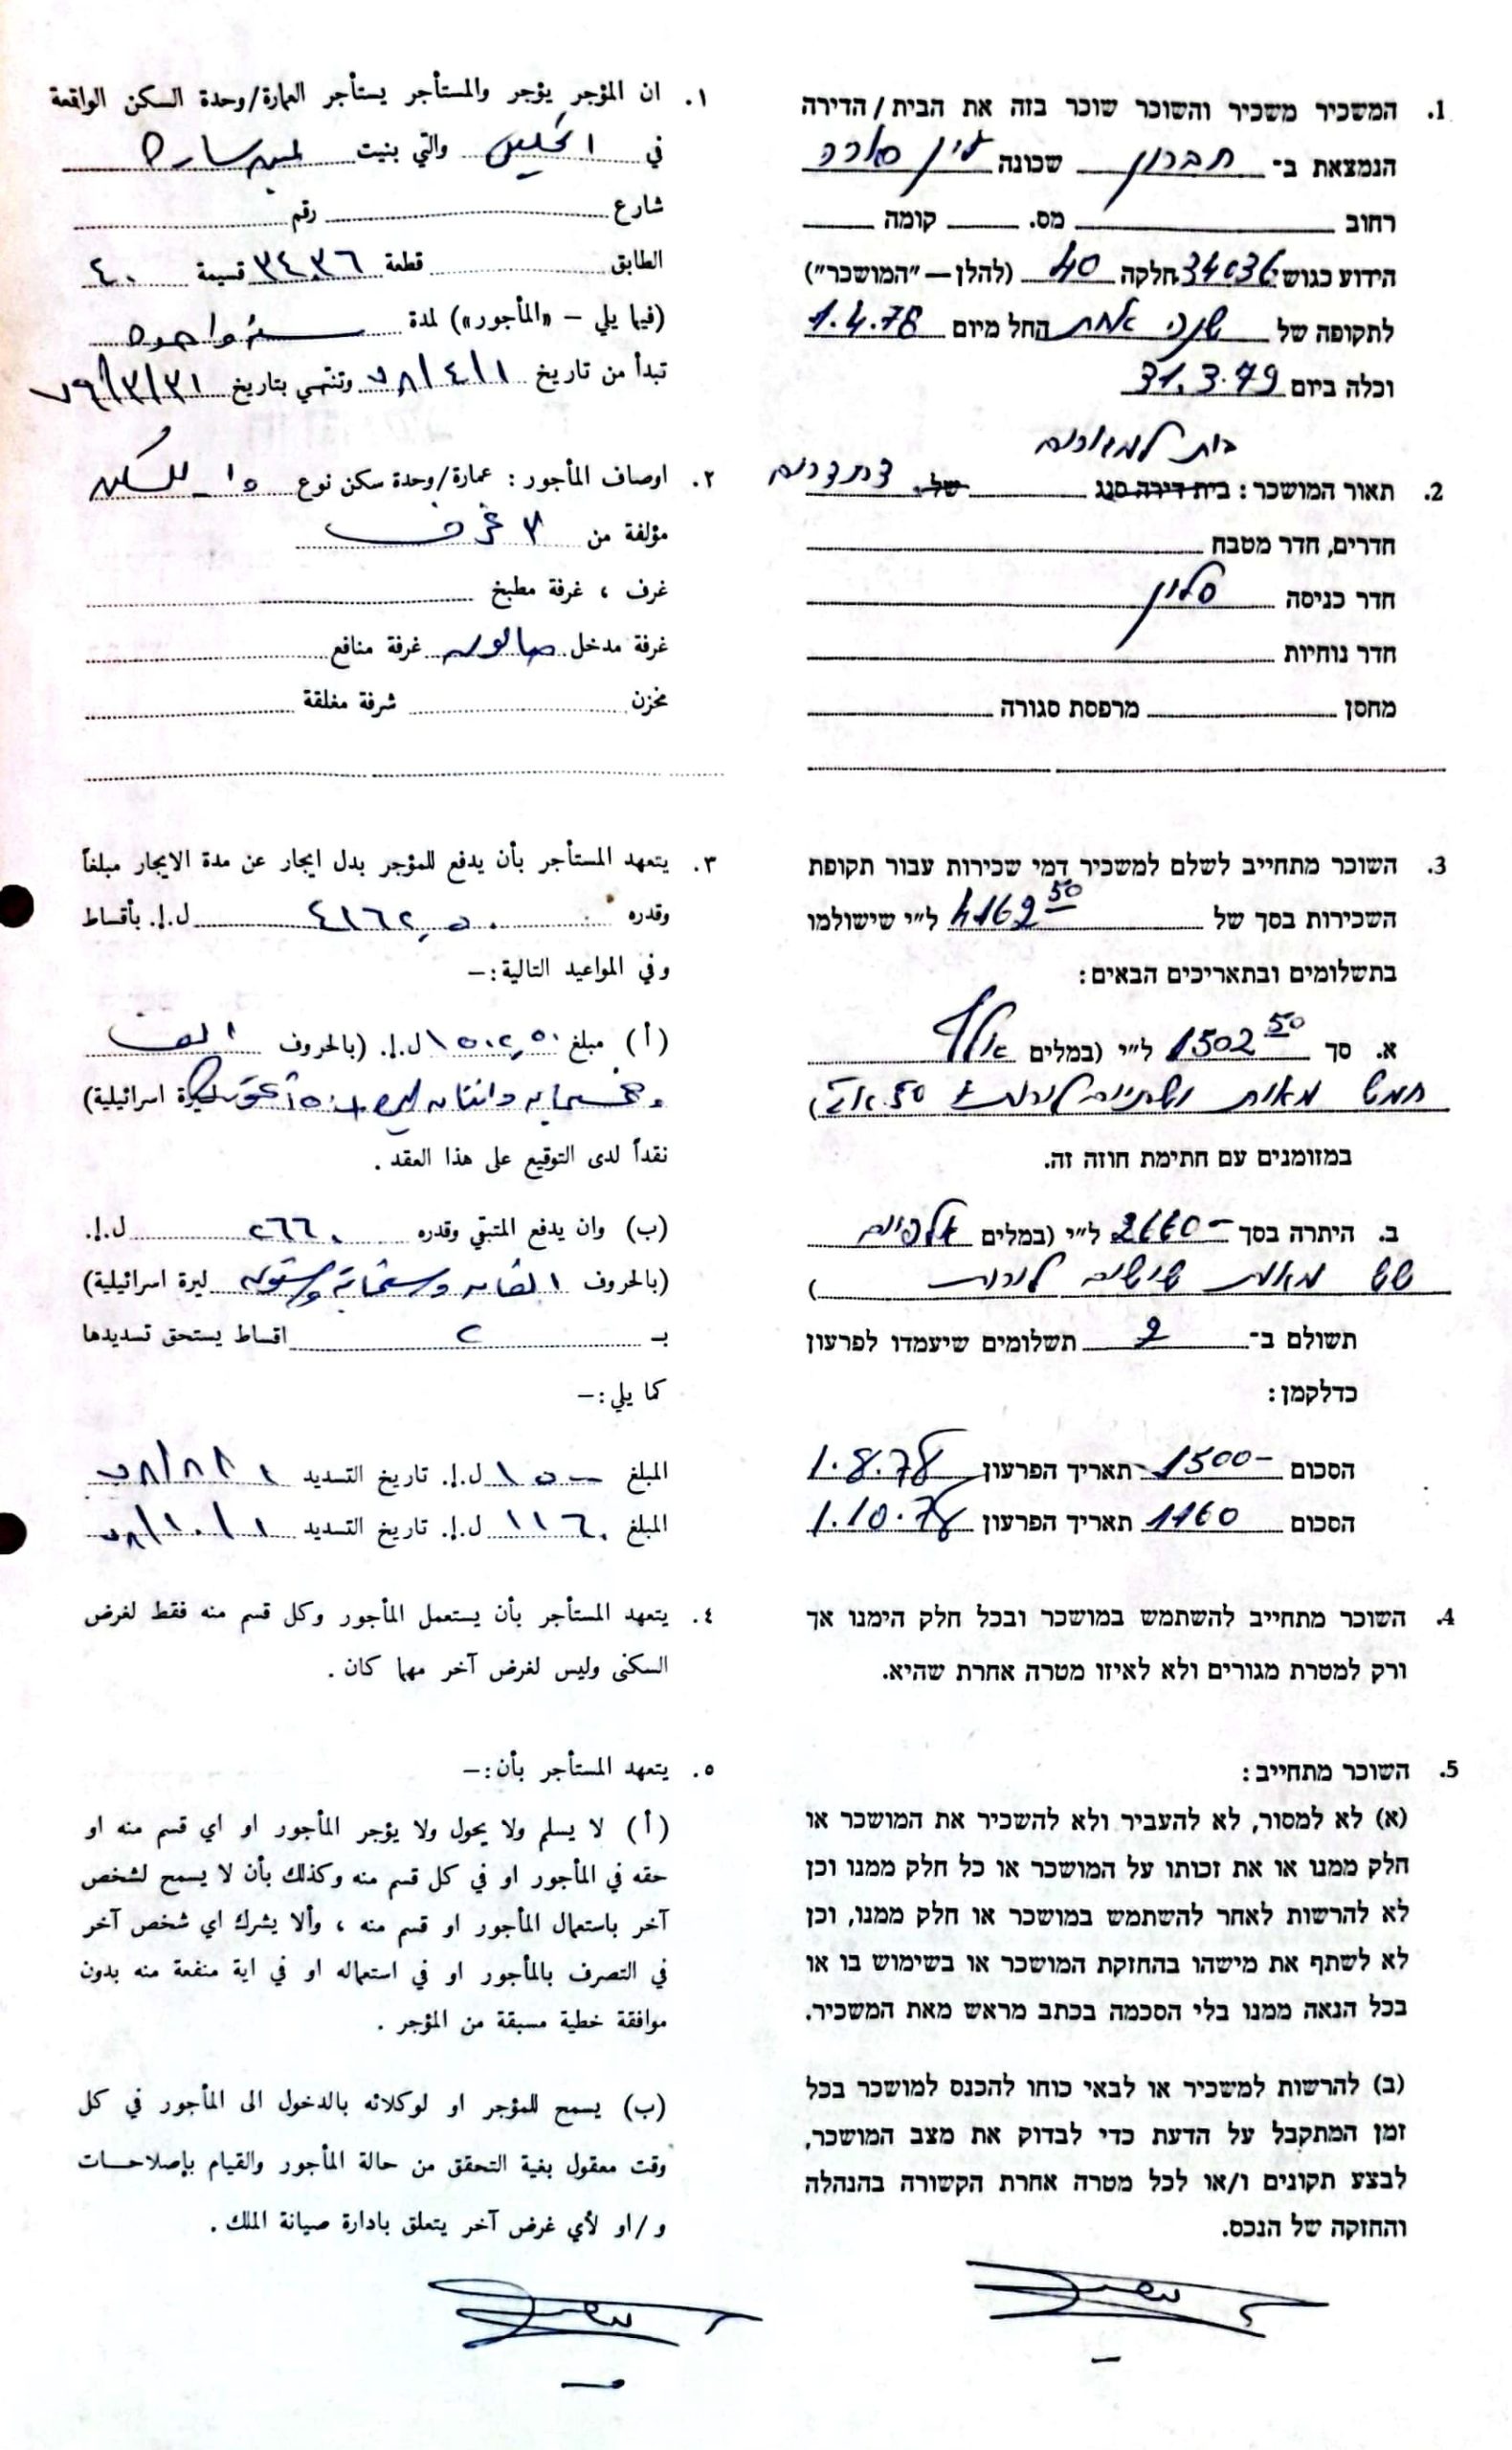 1. המשכיר משכיר והשוכר שוכר בזה את הבית/הדירה
הנמצאת ב־ חברון שכונה עין סארה
רחוב מס. קומה
הידוע כגוש 34036 חלקה 40 (להלן — "המושכר")
לתקופה של שנה אחת החל מיום 1.4.78
וכלה ביום 31.3.79
בית למגורים
2. תאור המושכר: בית דירה סגנ של
חדרים, חדר מטבח
חדר כניסה סלון
חדר נוחיות
מחסן מרפסת סגורה
3. השוכר מתחייב לשלם למשכיר דמי שכירות עבור תקופת
השכירות בסך של 4162 50 ל״י שישולמו
בתשלומים ובתאריכים הבאים:
א. סך 1502 50 ל״י (במלים אלף
חמש מאות ושתיים לירות 50 אג)
במזומנים עם חתימת חוזה זה.
ב. היתרה בסך 2660- ל״י (במלים אלפיים
שש מאות שישים לירות)
תשולם ב־ 2 תשלומים שיעמדו לפרעון
כדלקמן:
הסכום 1500- תאריך הפרעון 1.8.78
הסכום 1160 תאריך הפרעון 1.10.78
4. השוכר מתחייב להשתמש במושכר ובכל חלק הימנו אך
ורק למטרת מגורים ולא לאיזו מטרה אחרת שהיא.
5. השוכר מתחייב:
(א) לא למסור, לא להעביר ולא להשכיר את המושכר או
חלק ממנו או את זכותו על המושכר או כל חלק ממנו וכן
לא להרשות לאחר להשתמש במושכר או חלק ממנו, וכן
לא לשתף את מישהו בהחזקת המושכר או בשימוש בו או
בכל הנאה ממנו בלי הסכמה בכתב מראש מאת המשכיר.
(ב) להרשות למשכיר או לבאי כוחו להכנס למושכר בכל
זמן המתקבל על הדעת כדי לבדוק את מצב המושכר,
לבצע תקונים ו/או לכל מטרה אחרת הקשורה בהנהלה
והחזקה של הנכס.
١. ان المؤجر يؤجر والمستأجر يستأجر العمارة/وحدة السكن الواقعة
في الخليل والتي بنيت عين سارة
شارع رقم
الطابق قطعة ٣٤٠٣٦ قسيمة ٤٠
(فيما يلي – «المأجور») لمدة سنة واحدة
تبدأ من تاريخ ٧٨/٤/١ وتنتهي بتاريخ ٧٩/٣/٣١
٢. اوصاف المأجور: عمارة/وحدة سكن نوع للسكن
مؤلفة من غرف
غرف ، غرفة مطبخ
غرفة مدخل صالون غرفة منافع
مخزن شرفة مغلقة
٣. يتعهد المستأجر بأن يدفع للمؤجر بدل ايجار عن مدة الايجار مبلغاً
وقدره ٤١٦٢,٥٠ ل.إ. بأقساط
وفي المواعيد التالية:–
(أ) مبلغ ١٥٠٢,٥٠ ل.إ. (بالحروف الف
وخمسمايه واثنان ليرة اسرائيلية)
نقداً لدى التوقيع على هذا العقد.
(ب) وان يدفع المتبقي وقدره ٢٦٦٠ ل.إ.
(بالحروف الفان وستماية وستون ليرة اسرائيلية)
بـ ٢ اقساط يستحق تسديدها
كما يلي:–
المبلغ ١٥٠٠ ل.إ. تاريخ التسديد ٧٨/٨/١
المبلغ ١١٦٠ ل.إ. تاريخ التسديد ٧٨/١٠/١
٤. يتعهد المستأجر بأن يستعمل المأجور وكل قسم منه فقط لغرض
السكنى وليس لغرض آخر مهما كان.
٥. يتعهد المستأجر بأن:–
(أ) لا يسلم ولا يحول ولا يؤجر المأجور او اي قسم منه او
حقه في المأجور او في كل قسم منه وكذلك بأن لا يسمح لشخص
آخر باستعمال المأجور او قسم منه ، وألا يشرك اي شخص آخر
في التصرف بالمأجور او في استعماله او في اية منفعة منه بدون
موافقة خطية مسبقة من المؤجر.
(ب) يسمح للمؤجر او لوكلائه بالدخول الى المأجور في كل
وقت معقول بغية التحقق من حالة المأجور والقيام بإصلاحات
و/او لأي غرض آخر يتعلق بادارة صيانة الملك.